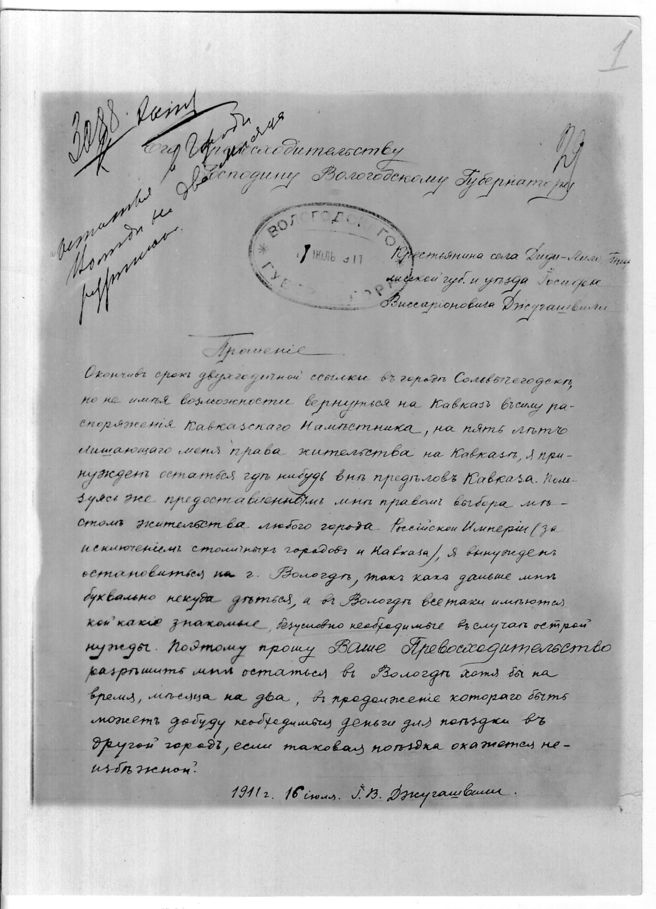 1
3088
Его Превосходительству
Господину Вологодскому Губернатору
ВОЛОГОДСК ГУБ
ИЮЛЬ 911
Крестьянина села Диди-Лило Тиф-
лисской губ. и уезда Іосифа
Виссаріоновича Джугашвили
Прошеніе
Окончивъ срокъ двухгодичной ссылки въ городѣ Сольвычегодскѣ,
но не имѣя возможности вернуться на Кавказъ въ силу ра-
споряженія Кавказскаго Намѣстника, на пять лѣтъ
лишающаго меня права жительства на Кавказѣ, я при-
нужденъ остаться гдѣ нибудь внѣ предѣловъ Кавказа. Поль-
зуясь же предоставленнымъ мнѣ правомъ выбора мѣ-
стомъ жительства любого города Россійской Имперіи (за
исключеніемъ столичныхъ городовъ и Кавказа), я вынужденъ
остановиться на г. Вологдѣ, такъ какъ дальше мнѣ
буквально некуда дѣться, а въ Вологдѣ все таки имѣются
кой какіе знакомые, безусловно необходимые въ случаѣ острой
нужды. Поэтому прошу Ваше Превосходительство
разрѣшить мнѣ остаться въ Вологдѣ хотя бы на
время, мѣсяца на два, въ продолженіе котораго быть
можетъ добуду необходимыя деньги для поѣздки въ
другой городъ, если таковая поѣздка окажется не-
избѣжной.
1911 г. 16 іюля. І. В. Джугашвили.